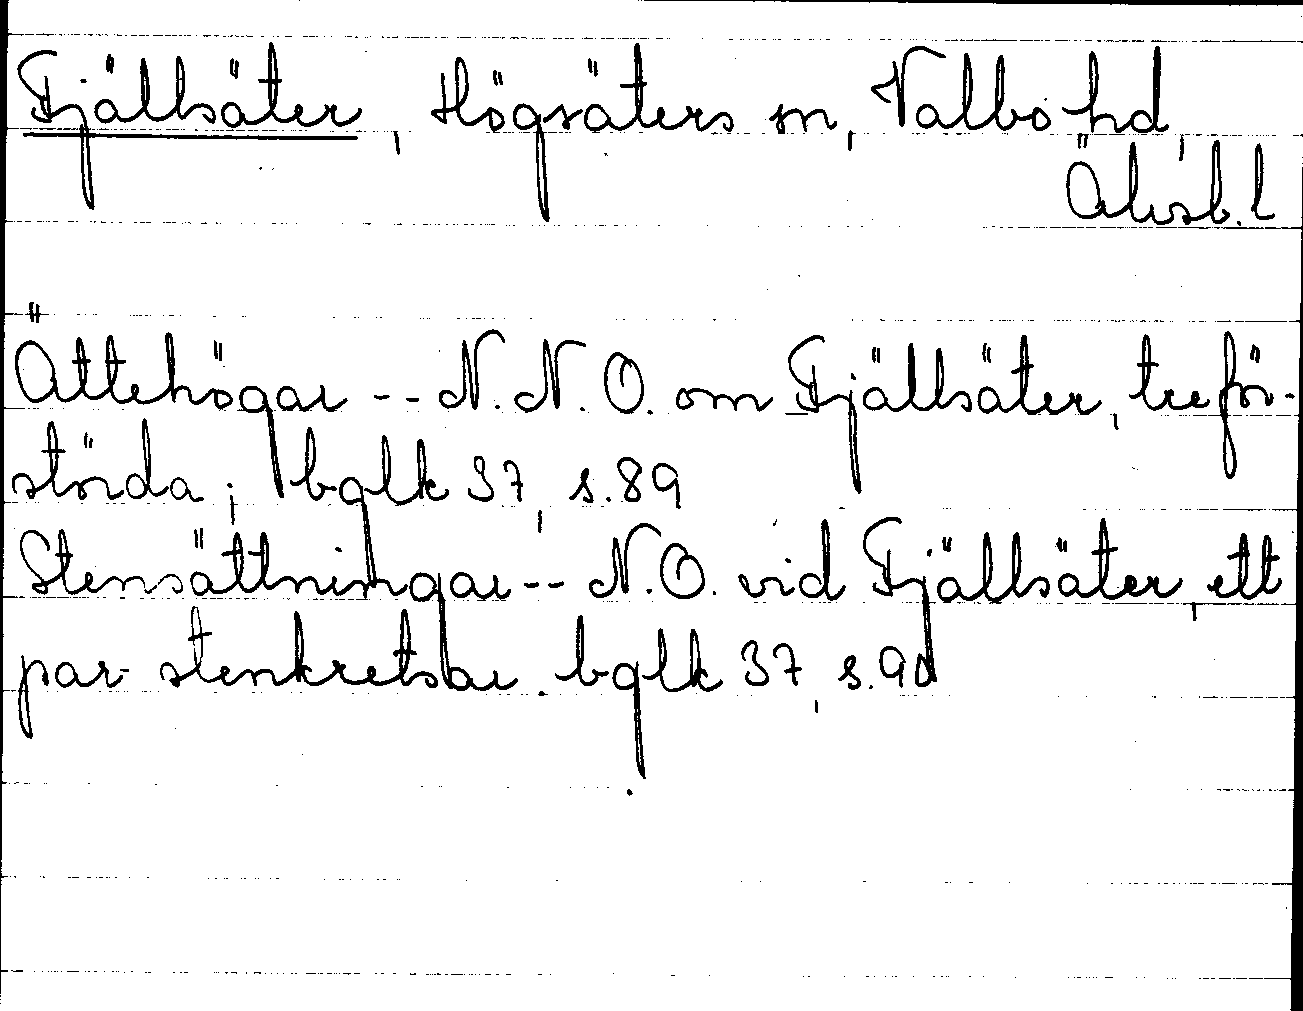 Fjällsäter, Högsäters sn, Valbo hd,
Älvsb. l
Ättehögar -- N.N.O. om Fjällsäter, tre för-
störda; bglk 37, s. 89
Stensättningar -- N.O. vid Fjällsäter, ett
par stenkretsar. bglk 37, s. 90